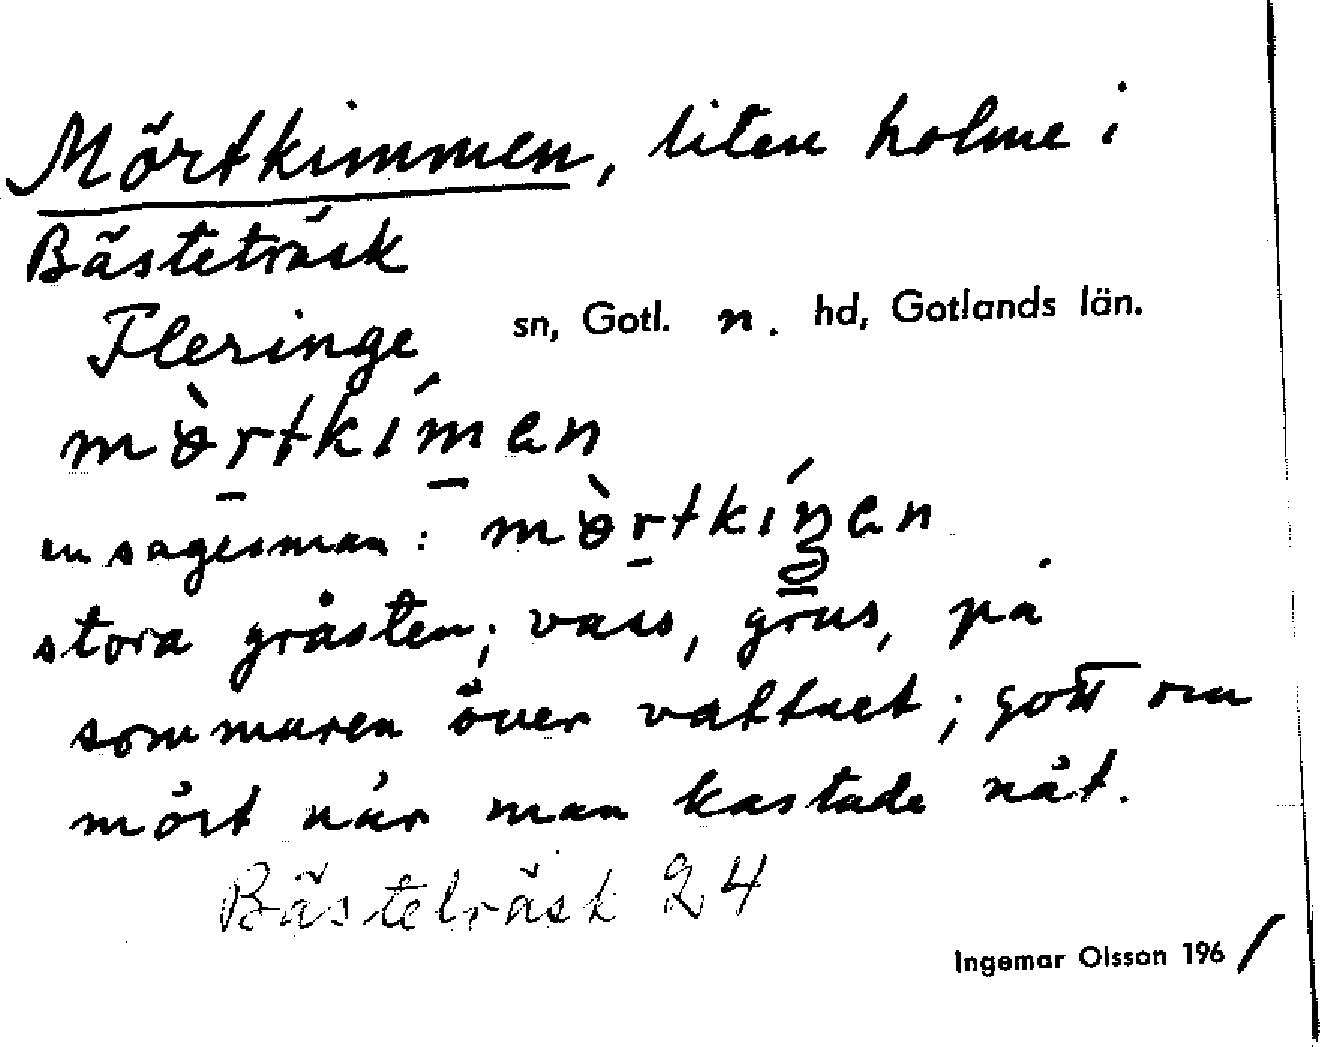 Mörtkimmen, liten holme i
Bästeträsk
Fleringe sn, Gotl. n. hd, Gotlands län.
mòrtkíman
en sagesman: mòrtkíŋan
stora gråsten; vass, grus, på
sommaren över vattnet; gott om
mört når man kastade nåt.
Bästeträsk 24
Ingemar Olsson 1961